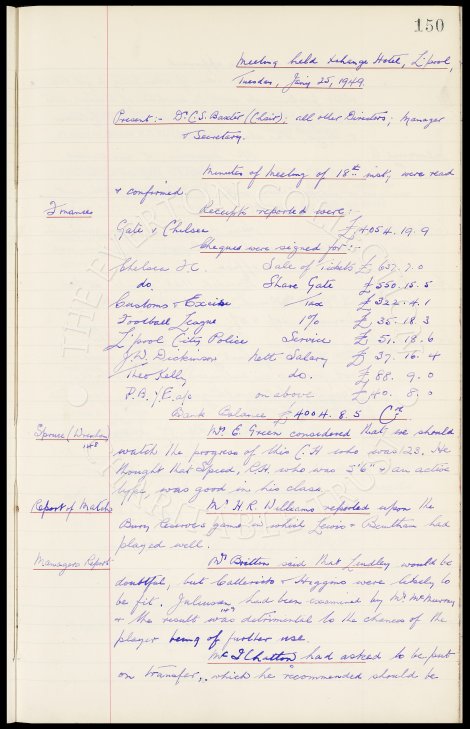 150
Meeting held Xchange Hotel, L'pool,
Tuesday, Jany 25, 1949.
Present:- Dr. C.S. Baxter (Chair); all other Directors; Manager
& Secretary.
Minutes of Meeting of 18th inst, were read
& confirmed.
Finances
Receipts reported were:
Gate v Chelsea £4054.19.9
Cheques were signed for:-
Chelsea F.C. Sale of Tickets £637.7.0
do. Share Gate £550.15.5
Customs & Excise Tax £322.4.1
Football League 1% £35.18.3
L'pool City Police Service £51.18.6
J.W. Dickinson nett Salary £37.16.4
Theo Kelly do. £88.9.0
P.B. & E. a/c as above £40.8.0
Bank Balance £4004.8.5 Cr
Spruce/Wrexham
Mr. E. Green considered that we should
watch the progress of this C.H. who was 23. He
thought that Speed, R.H. who was 5'6" & an active
type, was good in his class.
Report of Matches
Mr H.R. Williams reported upon the
Bury Reserves game in which Lewis & Bentham had
played well.
Managers Report
Mr Britton said that Lindley would be
doubtful, but Catterick & Higgins were likely to
be fit. Juliussen had been examined by Mr. McMurray
& the result was detrimental to the chances of the
player being of further use.
had asked to be put
on transfer, which he recommended should be
THE EVERTON COLLECTION